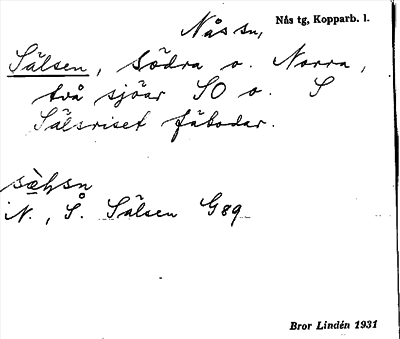 Nås sn, Nås tg, Kopparb. l.
Sälsen, Södra o. Norra,
två sjöar SO o. S
Sälsriset fäbodar.
N., S. Sälsen G89
Bror Lindén 1931